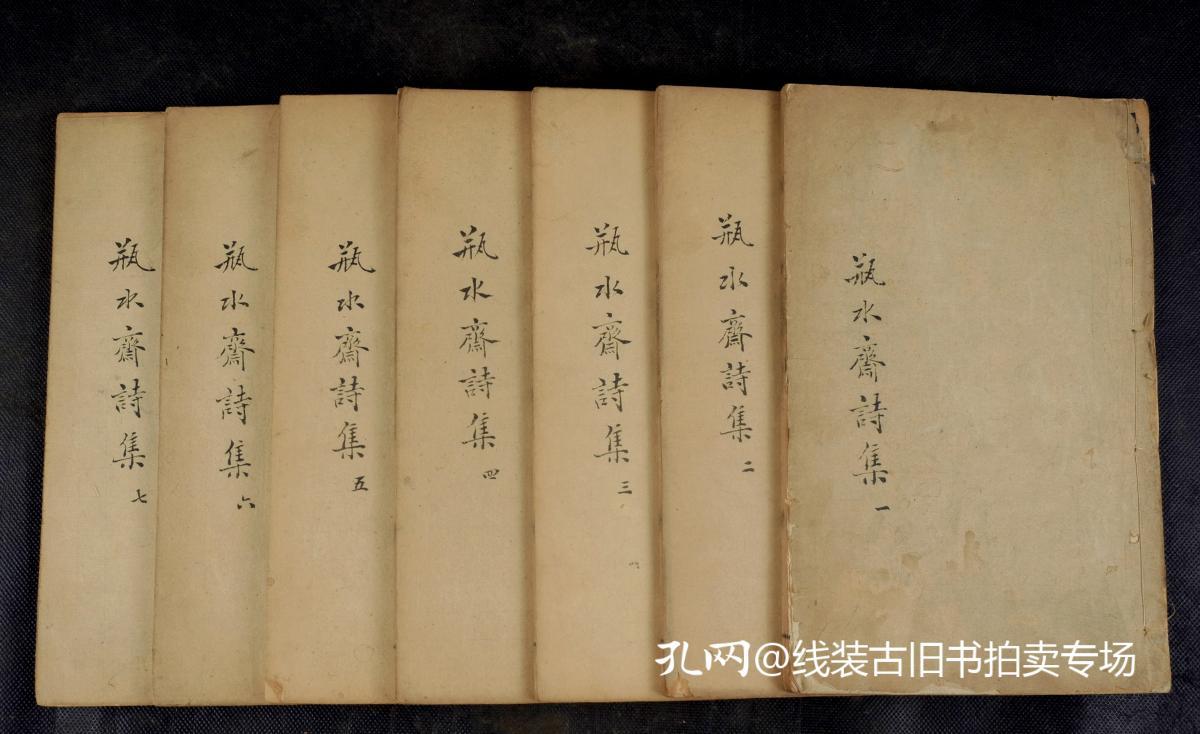 瓶水齋詩集 一
瓶水齋詩集 二
瓶水齋詩集 三
瓶水齋詩集 四
瓶水齋詩集 五
瓶水齋詩集 六
瓶水齋詩集 七
孔网@线装古旧书拍卖专场